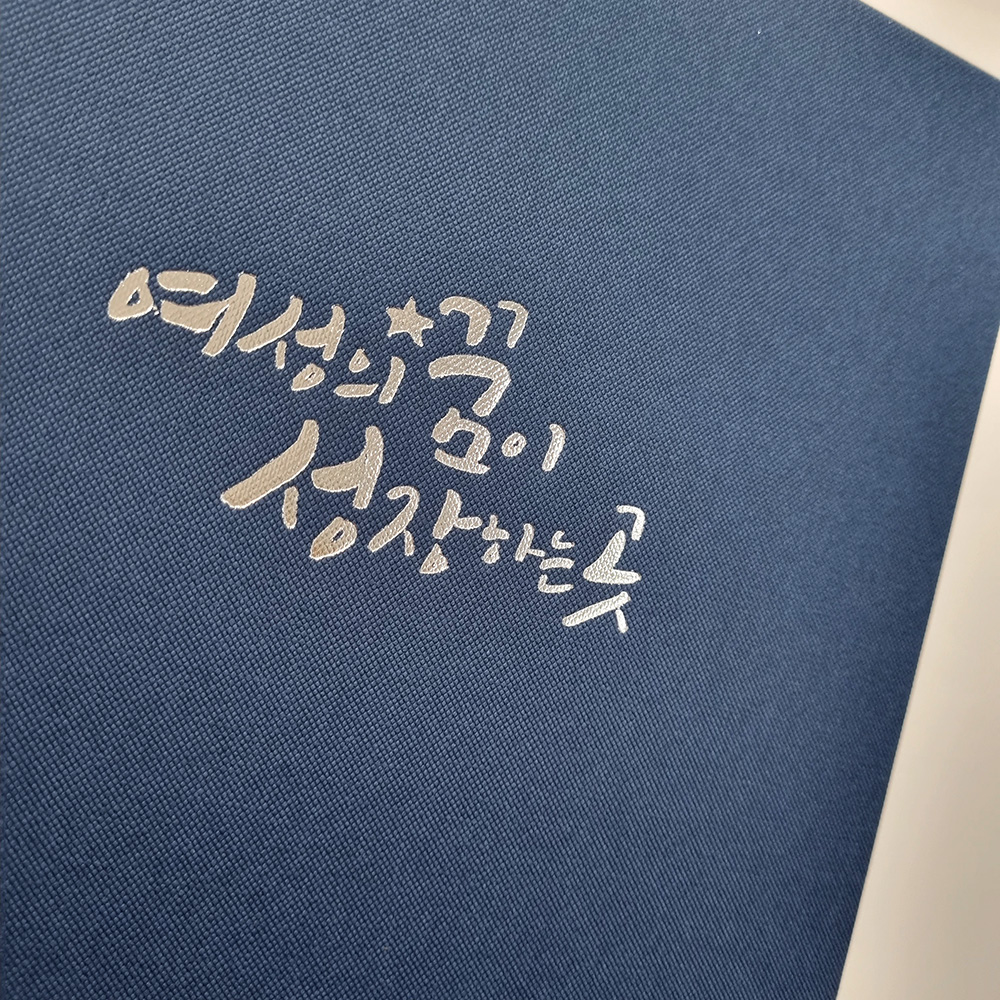 여성의 꿈이
성장하는 곳